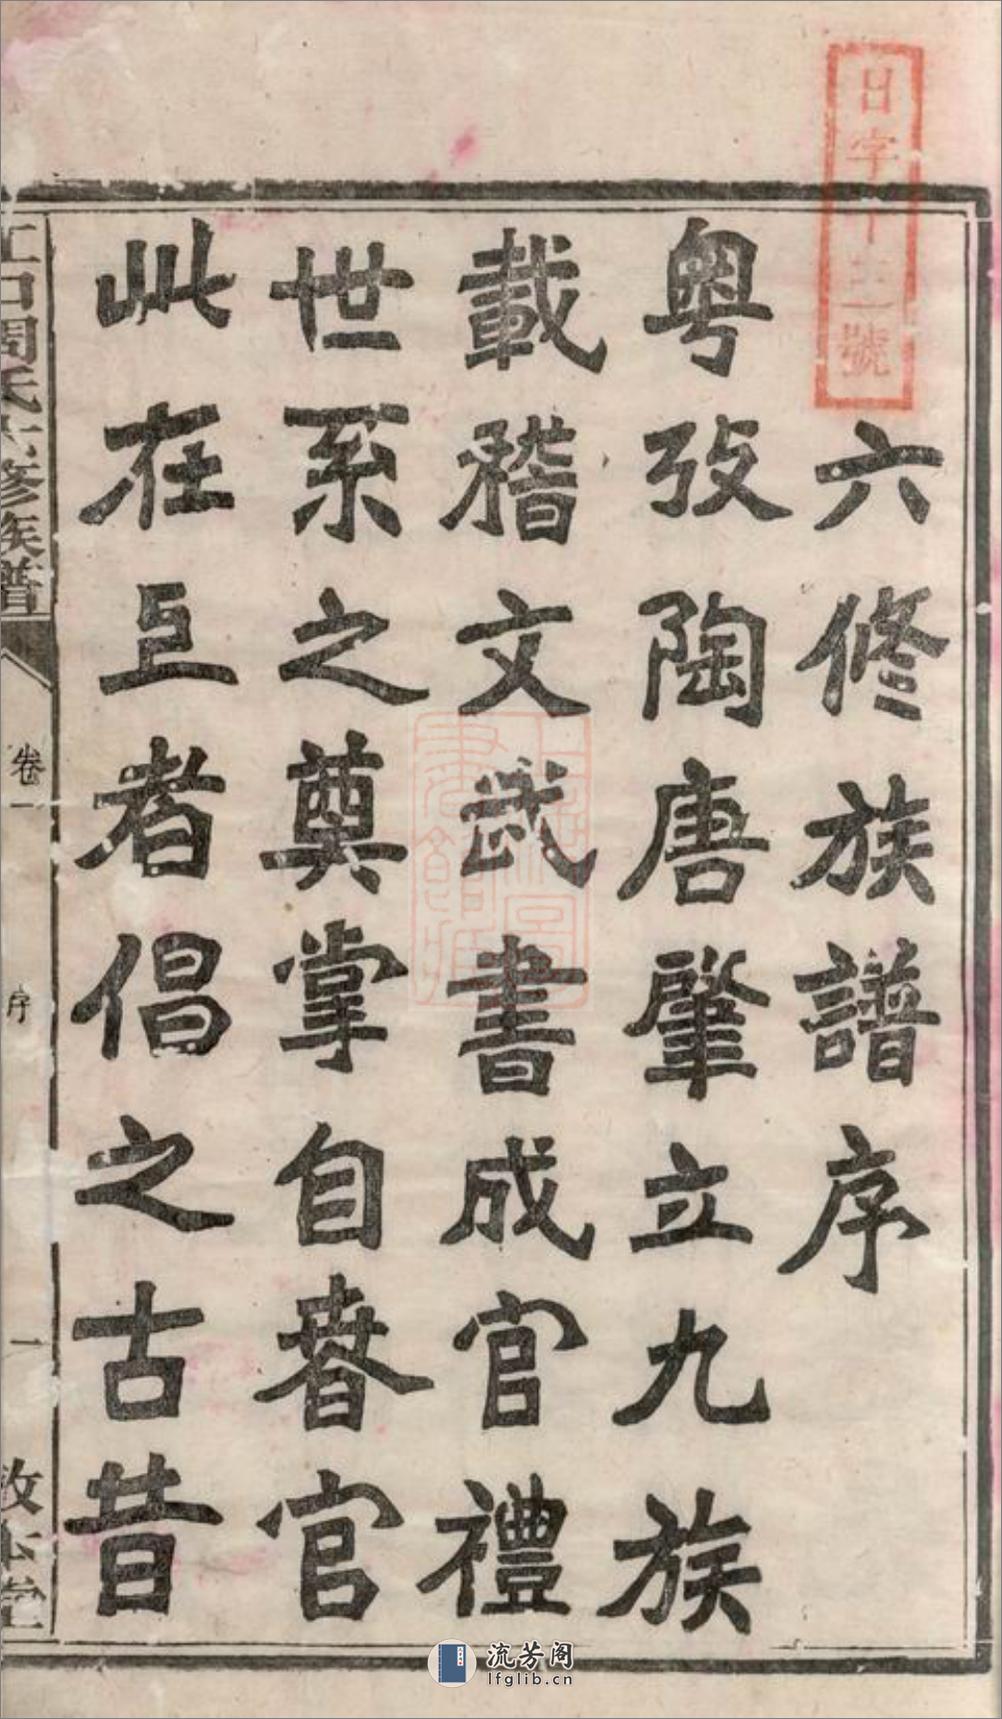 六修族譜序
粵攷陶唐肇立九族
載稽文武書成官禮
世系之奠掌自春官
此在上者倡之古昔
江口周氏六修族譜
卷一
序
一
敦本堂
日字十三號
上海圖書館藏
流芳阁
lfglib.cn